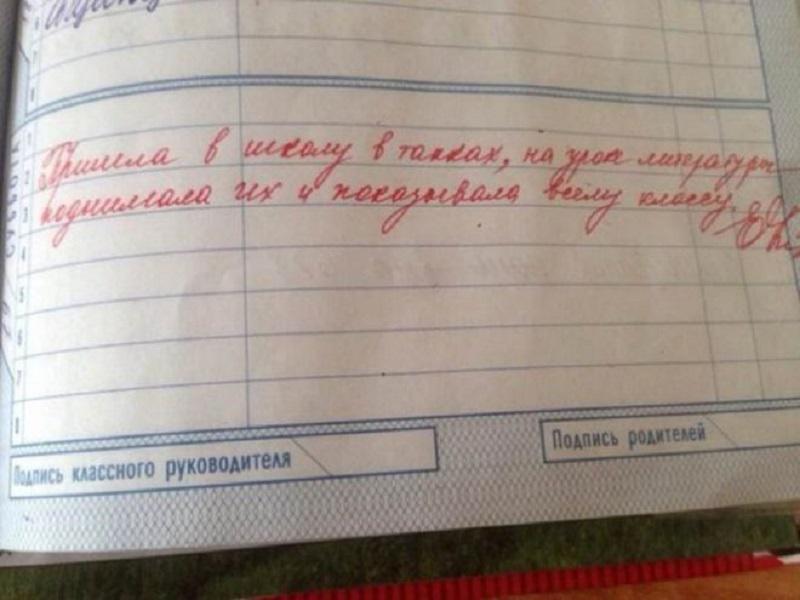 6
7
8
1
Пришла в школу в тапках, на урок литературы
2
поднимала их и показывала всему классу.
3
4
5
6
7
8
СУББОТА
Подпись классного руководителя
Подпись родителей